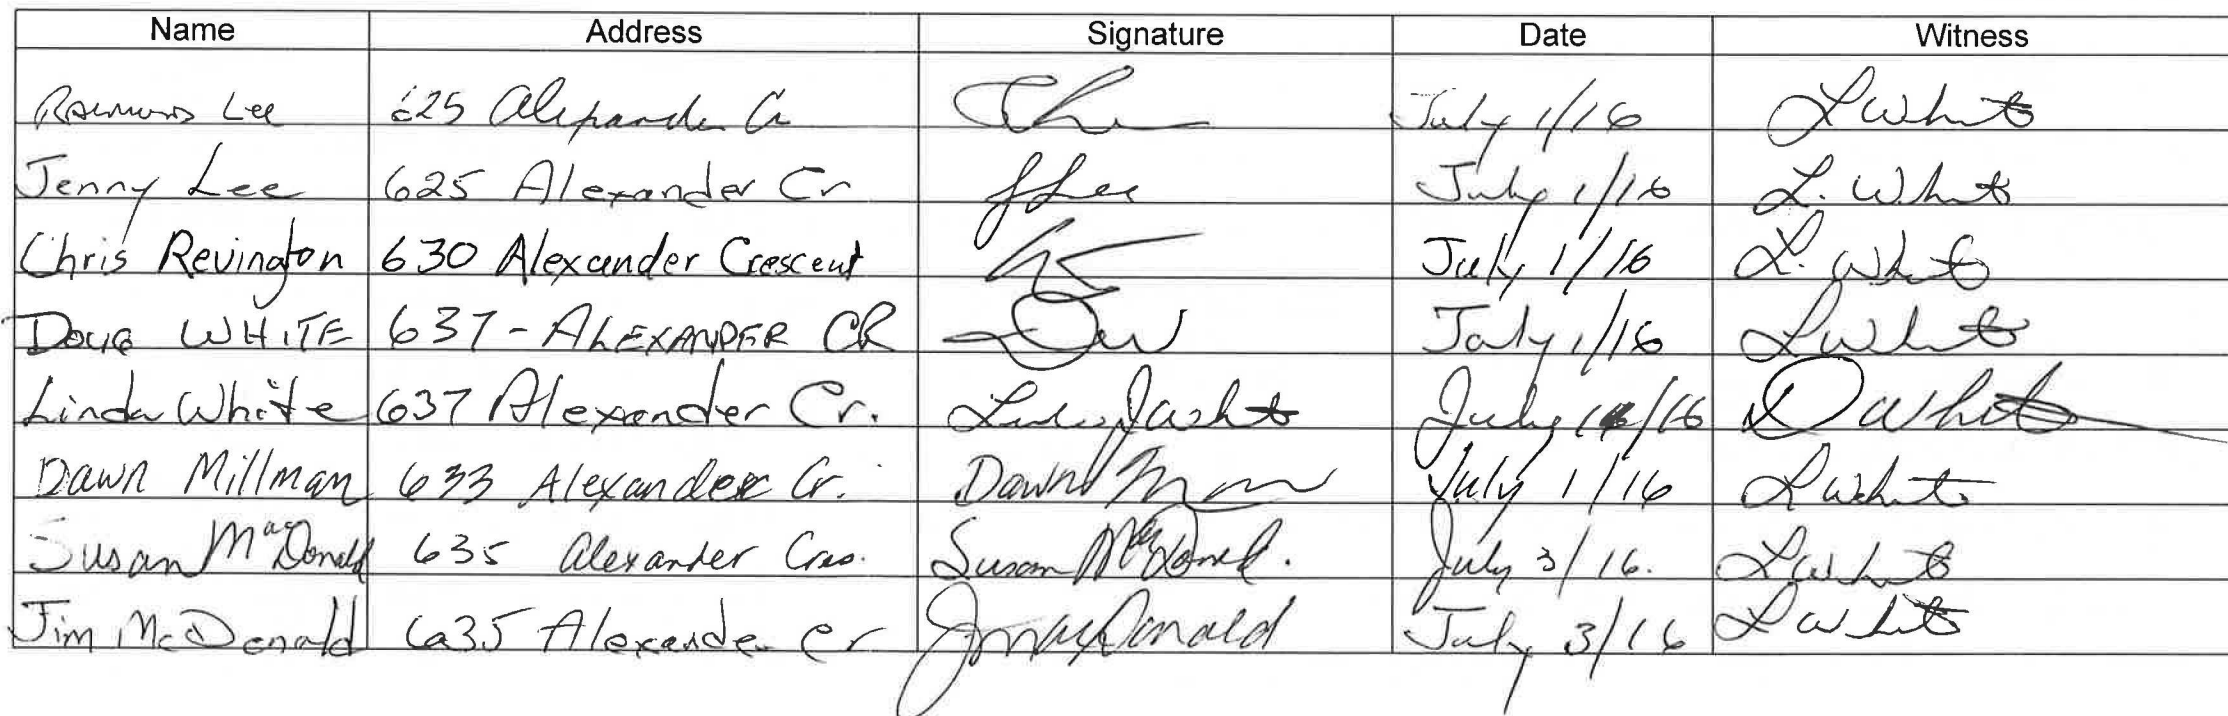 Name Address Signature Date Witness
Raymond Lee 625 Alexander Cr July 1/16 L White
Jenny Lee 625 Alexander Cr JLee July 1/16 L. White
Chris Revington 630 Alexander Crescent July 1/16 L. White
DOUG WHITE 637 - ALEXANDER CR DW July 1/16 L White
Linda White 637 Alexander Cr. Linda J White July 1/16 D White
Dawn Millman 633 Alexander Cr. Dawn July 1/16 L White
Susan MacDonald 635 Alexander Cres. Susan MacDonald. July 3/16. L White
Jim McDonald 635 Alexander Cr J MacDonald July 3/16 L White